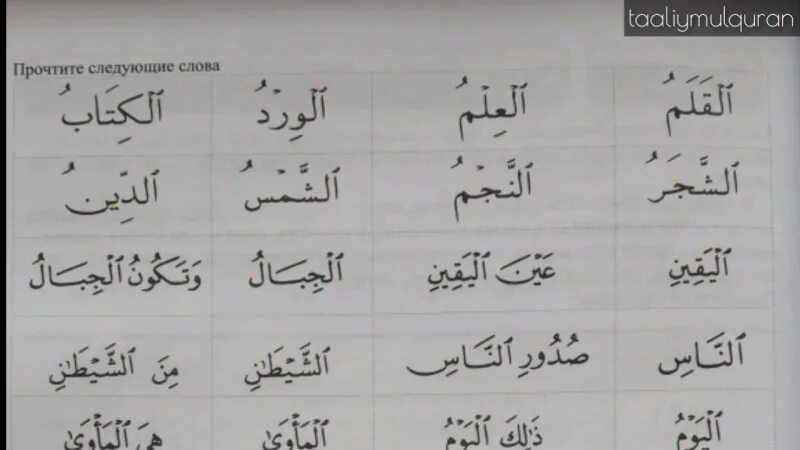 taaliymulquran
Прочтите следующие слова
ٱلْقَلَمُ ٱلْعِلْمُ ٱلْوِرْدُ ٱلْكِتَابُ
ٱلشَّجَرُ ٱلنَّجْمُ ٱلشَّمْسُ ٱلدِّينُ
ٱلْيَقِينِ عَيْنَ ٱلْيَقِينِ ٱلْجِبَالُ وَتَكُونُ ٱلْجِبَالُ
ٱلنَّاسِ صُدُورِ ٱلنَّاسِ ٱلشَّيْطَٰنِ مِنَ ٱلشَّيْطَٰنِ
ٱلْيَوْمُ ذَٰلِكَ ٱلْيَوْمُ ٱلْمَأْوَىٰ هِىَ ٱلْمَأْوَىٰ